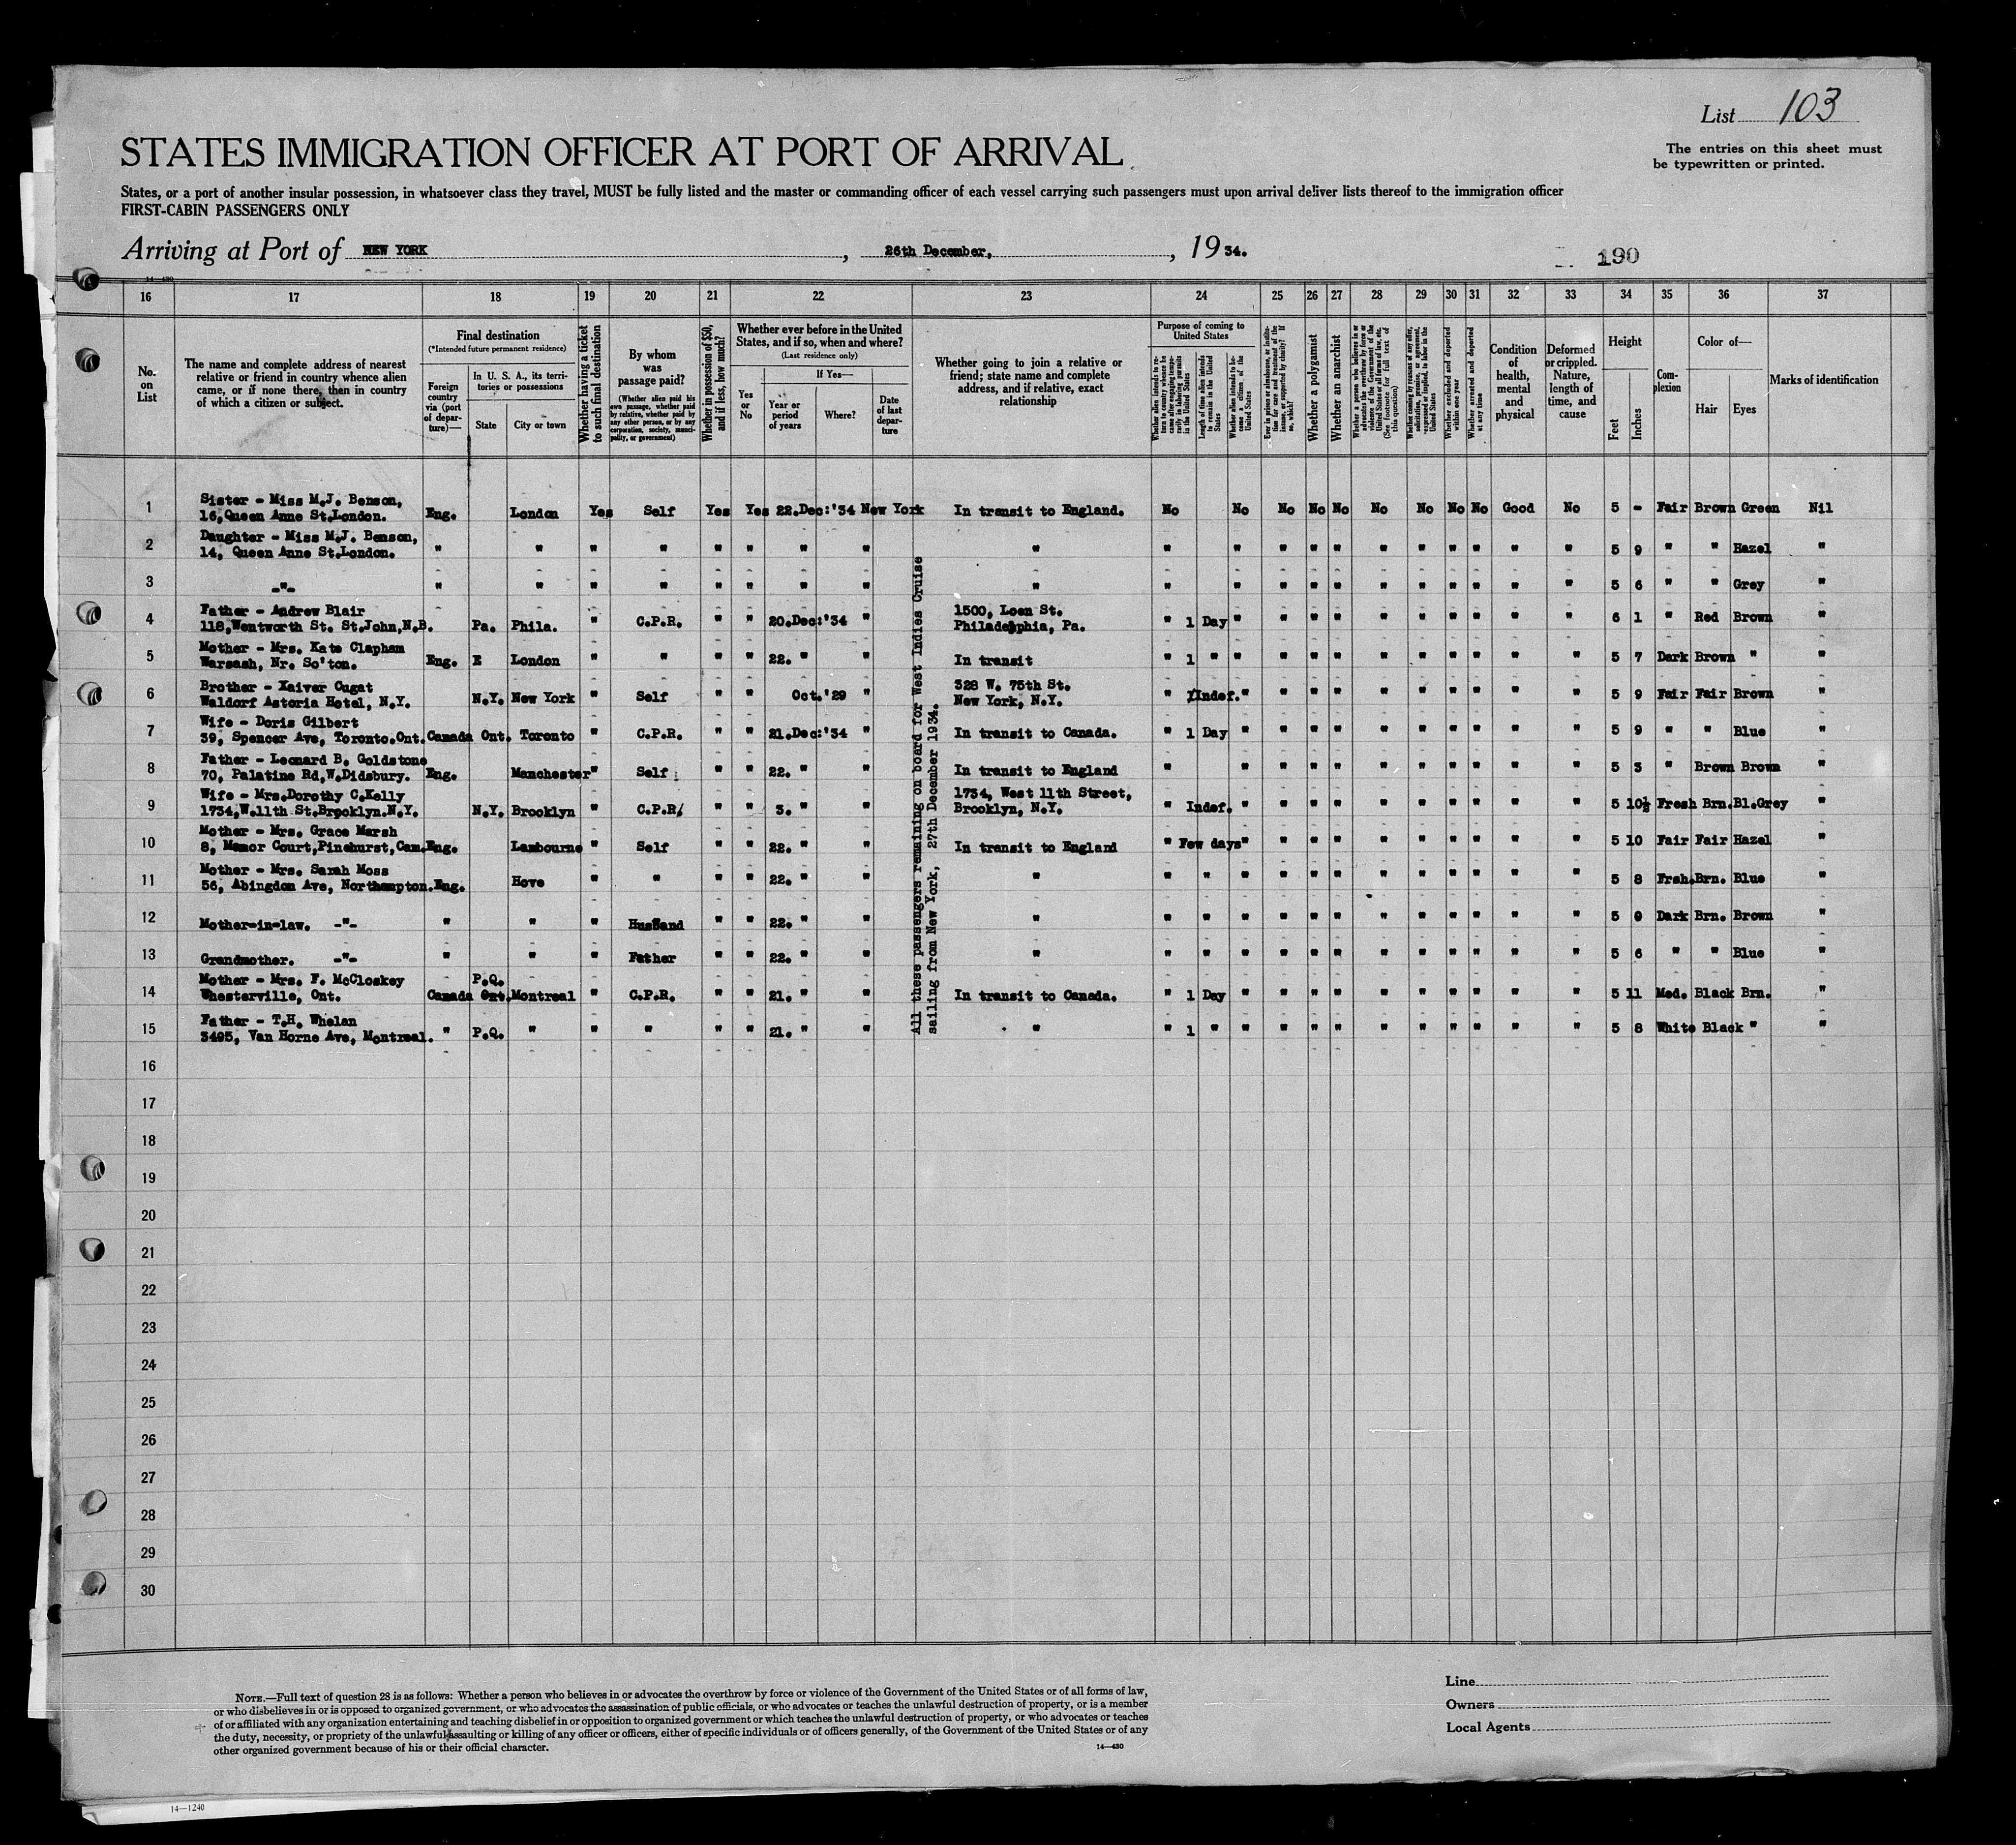 List 103
STATES IMMIGRATION OFFICER AT PORT OF ARRIVAL
The entries on this sheet must
be typewritten or printed.
States, or a port of another insular possession, in whatsoever class they travel, MUST be fully listed and the master or commanding officer of each vessel carrying such passengers must upon arrival deliver lists thereof to the immigration officer
FIRST-CABIN PASSENGERS ONLY
Arriving at Port of NEW YORK, 26th December, 1934.
190
14—430
16 17 18 19 20 21 22 23 24 25 26 27 28 29 30 31 32 33 34 35 36 37
No. on List
The name and complete address of nearest
relative or friend in country whence alien
came, or if none there, then in country
of which a citizen or subject.
Final destination
(*Intended future permanent residence)
Foreign country via (port of departure)—
In U. S. A., its territories or possessions
State
City or town
Whether having a ticket to such final destination
By whom was passage paid?
(Whether alien paid his own passage, whether paid by relative, whether paid by any other person, or by any corporation, society, municipality, or government)
Whether in possession of $50, and if less, how much?
Whether ever before in the United States, and if so, when and where?
(Last residence only)
Yes or No
If Yes—
Year or period of years
Where?
Date of last departure
Whether going to join a relative or
friend; state name and complete
address, and if relative, exact
relationship
Purpose of coming to United States
Length of time alien intends to remain in the United States
Whether alien intends to become a citizen of the United States
Whether a polygamist
Whether an anarchist
Whether excluded and deported within one year
Whether arrested and deported at any time
Condition of health, mental and physical
Deformed or crippled. Nature, length of time, and cause
Height
Feet
Inches
Complexion
Color of—
Hair
Eyes
Marks of identification
1 Sister - Miss M.J. Benson,
16, Queen Anne St. London. Eng. London Yes Self Yes Yes 22.Dec:'34 New York In transit to England. No No No No No No No No No Good No 5 - Fair Brown Green Nil
2 Daughter - Miss M.J. Benson,
14, Queen Anne St. London. " " " " " " " " " " " " " " " " " " " " " 5 9 " " Hazel "
3 -"- " " " " " " " " " " " " " " " " " " " " " 5 6 " " Grey "
4 Father - Andrew Blair 1500, Loen St.
118, Wentworth St. St.John, N.B. Pa. Phila. " C.P.R. " " 20.Dec:'34 " Philadelphia, Pa. " 1 Day " " " " " " " " " " 6 1 " Red Brown "
5 Mother - Mrs. Kate Clapham
Warsash, Nr. So'ton. Eng. E London " " " " 22. " " In transit " 1 " " " " " " " " " " " 5 7 Dark Brown " "
6 Brother - Xaiver Cugat 328 W. 75th St.
Waldorf Astoria Hotel, N.Y. N.Y. New York " Self " " Oct.'29 " New York, N.Y. " Indef. " " " " " " " " " " 5 9 Fair Fair Brown "
7 Wife - Doris Gilbert
39, Spencer Ave, Toronto. Ont. Canada Ont. Toronto " C.P.R. " " 21.Dec:'34 " In transit to Canada. " 1 Day " " " " " " " " " " 5 9 " " Blue "
8 Father - Leonard B. Goldstone
70, Palatine Rd, W. Didsbury. Eng. Manchester " Self " " 22. " " In transit to England " " " " " " " " " " " 5 3 " Brown Brown "
9 Wife - Mrs. Dorothy C. Kelly 1734, West 11th Street,
1734, W. 11th St. Brooklyn. N.Y. N.Y. Brooklyn " C.P.R. " " 3. " " Brooklyn, N.Y. " Indef. " " " " " " " " " " 5 10½ Fresh Brn. Bl.Grey "
10 Mother - Mrs. Grace Marsh
8, Manor Court, Pinehurst, Cam. Eng. Lambourne " Self " " 22. " " In transit to England " Few days " " " " " " " " " " 5 10 Fair Fair Hazel "
11 Mother - Mrs. Sarah Moss
56, Abingdon Ave, Northampton. Eng. Hove " " " " 22. " " " " " " " " " " " " " " " 5 8 Frsh. Brn. Blue "
12 Mother-in-law. -"- " " " Husband " " 22. " " " " " " " " " " " " " " " 5 9 Dark Brn. Brown "
13 Grandmother. -"- " " " Father " " 22. " " " " " " " " " " " " " " " 5 6 " " Blue "
14 Mother - Mrs. F. McCloskey P.Q.
Chesterville, Ont. Canada Ont. Montreal " C.P.R. " " 21. " " In transit to Canada. " 1 Day " " " " " " " " " " 5 11 Med. Black Brn. "
15 Father - T.H. Whelan
3495, Van Horne Ave, Montreal. " P.Q. " " " " " 21. " " " " 1 " " " " " " " " " " " 5 8 White Black " "
All these passengers remaining on board for West Indies Cruise
sailing from New York, 27th December 1934.
16
17
18
19
20
21
22
23
24
25
26
27
28
29
30
NOTE.—Full text of question 28 is as follows: Whether a person who believes in or advocates the overthrow by force or violence of the Government of the United States or of all forms of law,
or who disbelieves in or is opposed to organized government, or who advocates the assassination of public officials, or who advocates or teaches the unlawful destruction of property, or is a member
of or affiliated with any organization entertaining and teaching disbelief in or opposition to organized government or which teaches the unlawful destruction of property, or who advocates or teaches
the duty, necessity, or propriety of the unlawful assaulting or killing of any officer or officers, either of specific individuals or of officers generally, of the Government of the United States or of any
other organized government because of his or their official character.
14—430
Line
Owners
Local Agents
14—1240